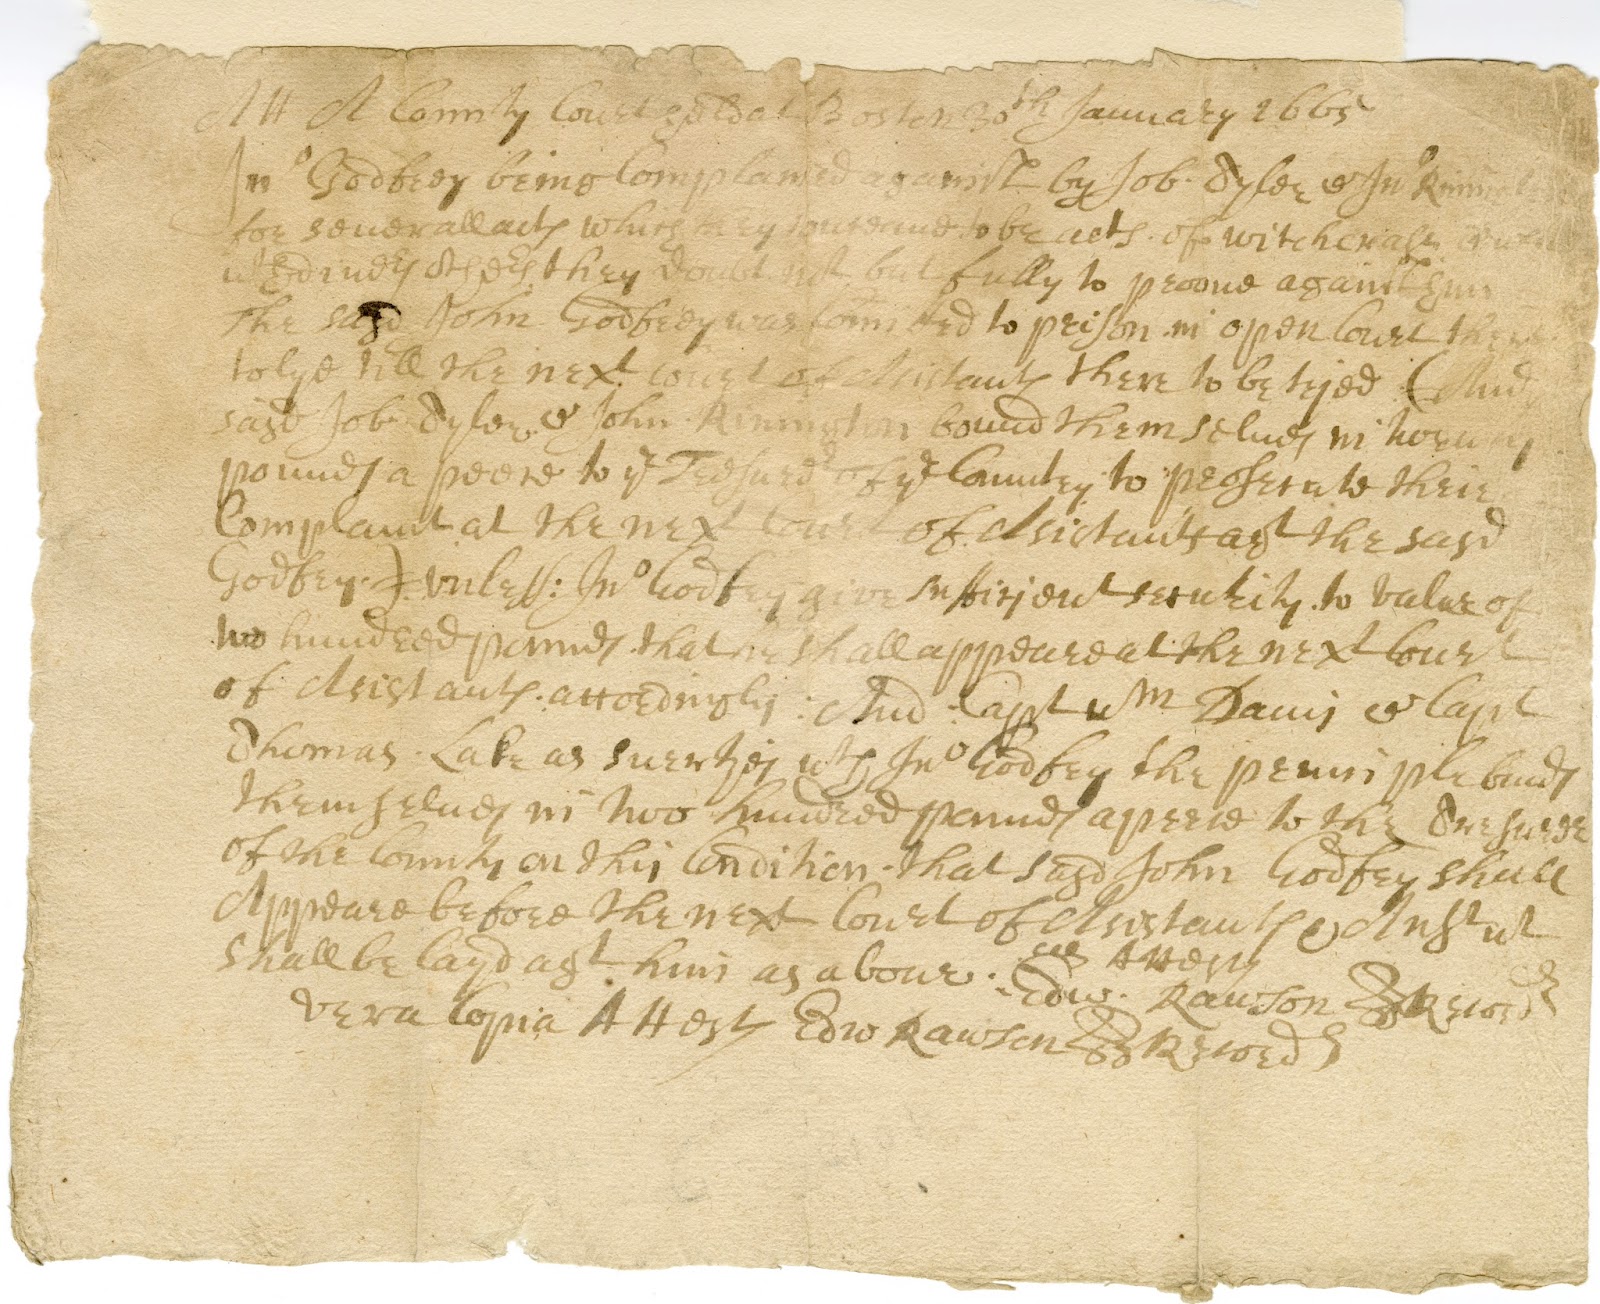 Att A County Court held at Boston 30th January 1665
Jno Godfrey being Complained against by Job Tyler & Jno Rimington
for seuerall acts which they conceaue to be acts of witchcraft
others they doubt not but fully to prooue against him
the sajd John Godfrey was Comitted to prison in open Court there
to lye till the next Court of Asistants there to be tryed (And
sajd Job Tyler & John Rimington bound themselues in
pounds a peece to ye Tresurer of ye Country to prossecute their
Complaint at the next Court of Asistants agt the sajd
Godfrey) vnless Jno Godfrey give suffitjent securitty to value of
two hundred pounds that he shall appeare at the next Court
of Asistants accordingly: And Capt Wm Davis & Capt
Thomas Lake as suertjes wth Jno Godfrey the principle binds
themselues in two hundred pounds apeece to the Tresurer
of the County on this Condition that sajd John Godfrey shall
Appeare before the next Court of Asistants & Ansr wt
shall be layd agt him as aboue. as Attests
Edw. Rawson Recordr
vera Copia Attests Edw Rawson Recordr